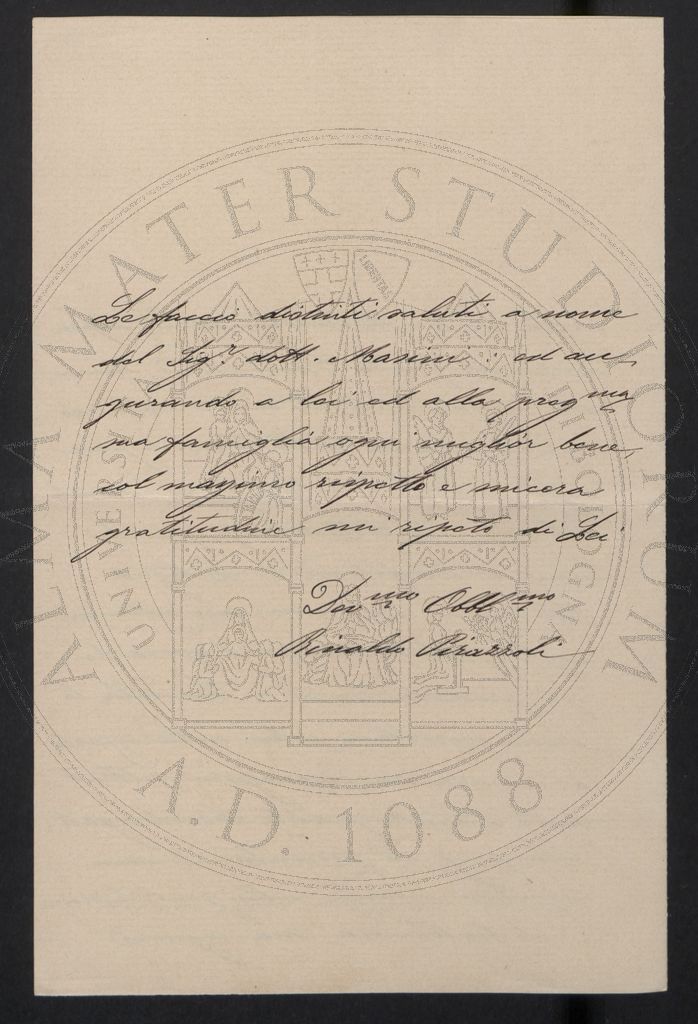 Le faccio distinti saluti a nome
del Sig.r dott. Masini: ed au-
gurando a lei ed alla preg.ma
sua famiglia ogni miglior bene,
col massimo rispetto e sincera
gratitudine mi ripeto di Lei
Dev.mo Obbl.mo
Rinaldo Pirazzoli
ALMA MATER STUDIORUM
A.D. 1088
LIBERTAS